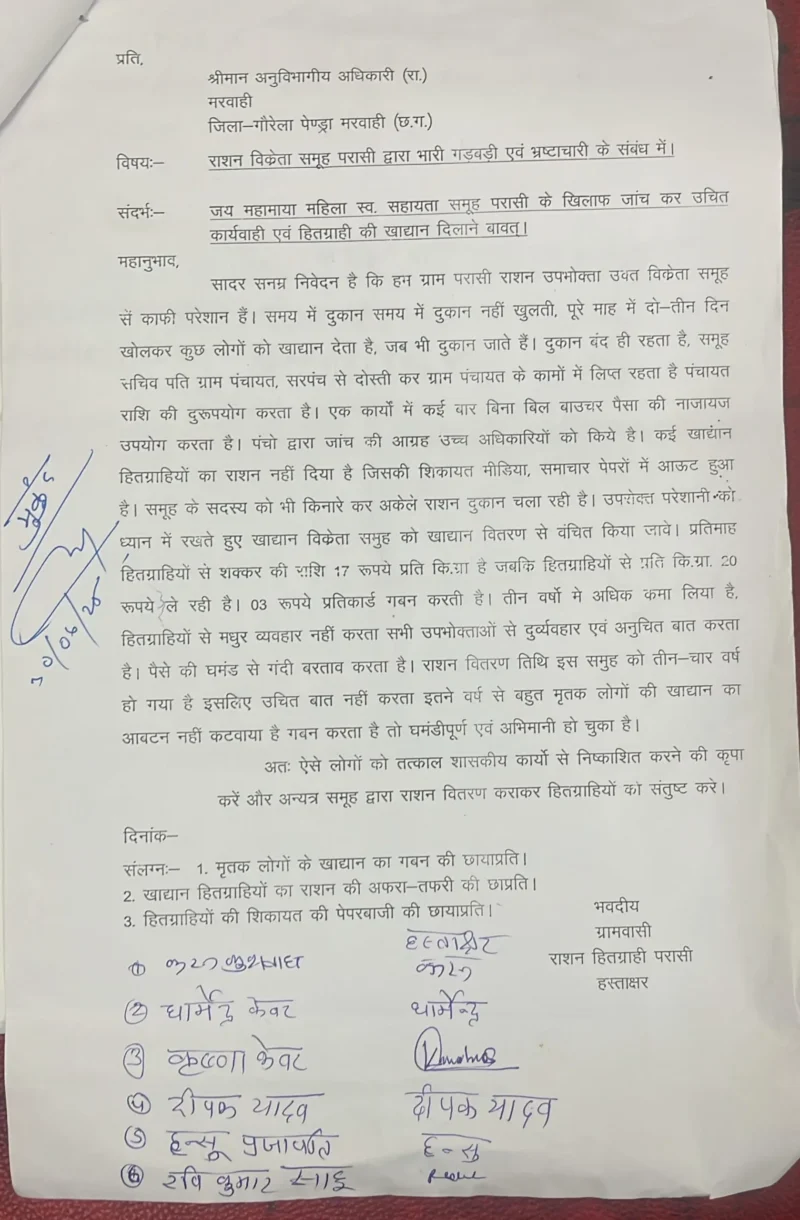 प्रति,
श्रीमान अनुविभागीय अधिकारी (रा.)
मरवाही
जिला–गौरेला पेण्ड्रा मरवाही (छ.ग.)
विषयः– राशन विक्रेता समूह परासी द्वारा भारी गड़बड़ी एवं भ्रष्टाचारी के संबंध में।
संदर्भः– जय महामाया महिला स्व. सहायता समूह परासी के खिलाफ जांच कर उचित
कार्यवाही एवं हितग्राही की खाद्यान दिलाने बावत्।
महानुभाव,
सादर सनम्र निवेदन है कि हम ग्राम परासी राशन उपभोक्ता उक्त विक्रेता समूह
सें काफी परेशान हैं। समय में दुकान समय में दुकान नहीं खुलती, पूरे माह में दो–तीन दिन
खोलकर कुछ लोगों को खाद्यान देता है, जब भी दुकान जाते हैं। दुकान बंद ही रहता है, समूह
सचिव पति ग्राम पंचायत, सरपंच से दोस्ती कर ग्राम पंचायत के कामों में लिप्त रहता है पंचायत
राशि की दुरूपयोग करता है। एक कार्यो में कई बार बिना बिल बाउचर पैसा की नाजायज
उपयोग करता है। पंचो द्वारा जांच की आग्रह उच्च अधिकारियों को किये है। कई खाद्यान
हितग्राहियों का राशन नहीं दिया है जिसकी शिकायत मीडिया, समाचार पेपरों में आऊट हुआ
है। समूह के सदस्य को भी किनारे कर अकेले राशन दुकान चला रही है। उपरोक्त परेशानी को
ध्यान में रखते हुए खाद्यान विक्रेता समुह को खाद्यान वितरण से वंचित किया जावे। प्रतिमाह
हितग्राहियों से शक्कर की राशि 17 रूपये प्रति कि.ग्रा है जबकि हितग्राहियों से प्रति कि.ग्रा. 20
रूपये ले रही है। 03 रूपये प्रतिकार्ड गबन करती है। तीन वर्षो मे अधिक कमा लिया है,
हितग्राहियों से मधुर व्यवहार नहीं करता सभी उपभोक्ताओं से दुर्व्यवहार एवं अनुचित बात करता
है। पैसे की घमंड से गंदी बरताव करता है। राशन वितरण तिथि इस समुह को तीन–चार वर्ष
हो गया है इसलिए उचित बात नहीं करता इतने वर्ष से बहुत मृतक लोगों की खाद्यान का
आबटन नहीं कटवाया है गबन करता है तो घमंडीपूर्ण एवं अभिमानी हो चुका है।
अतः ऐसे लोगों को तत्काल शासकीय कार्यो से निष्काशित करने की कृपा
करें और अन्यत्र समूह द्वारा राशन वितरण कराकर हितग्राहियों को संतुष्ट करे।
दिनांक–
संलग्नः– 1. मृतक लोगों के खाद्यान का गबन की छायाप्रति।
2. खाद्यान हितग्राहियों का राशन की अफरा–तफरी की छाप्रति।
3. हितग्राहियों की शिकायत की पेपरबाजी की छायाप्रति।
भवदीय
ग्रामवासी
राशन हितग्राही परासी
हस्ताक्षर
हस्ताक्षर
①
② धार्मेन्द्र केवट धार्मेन्द्र
③ कृष्णा केवट
④ दीपक यादव दीपक यादव
⑤ हन्सू प्रजापति हन्सु
⑥ रवि कुमार साहू